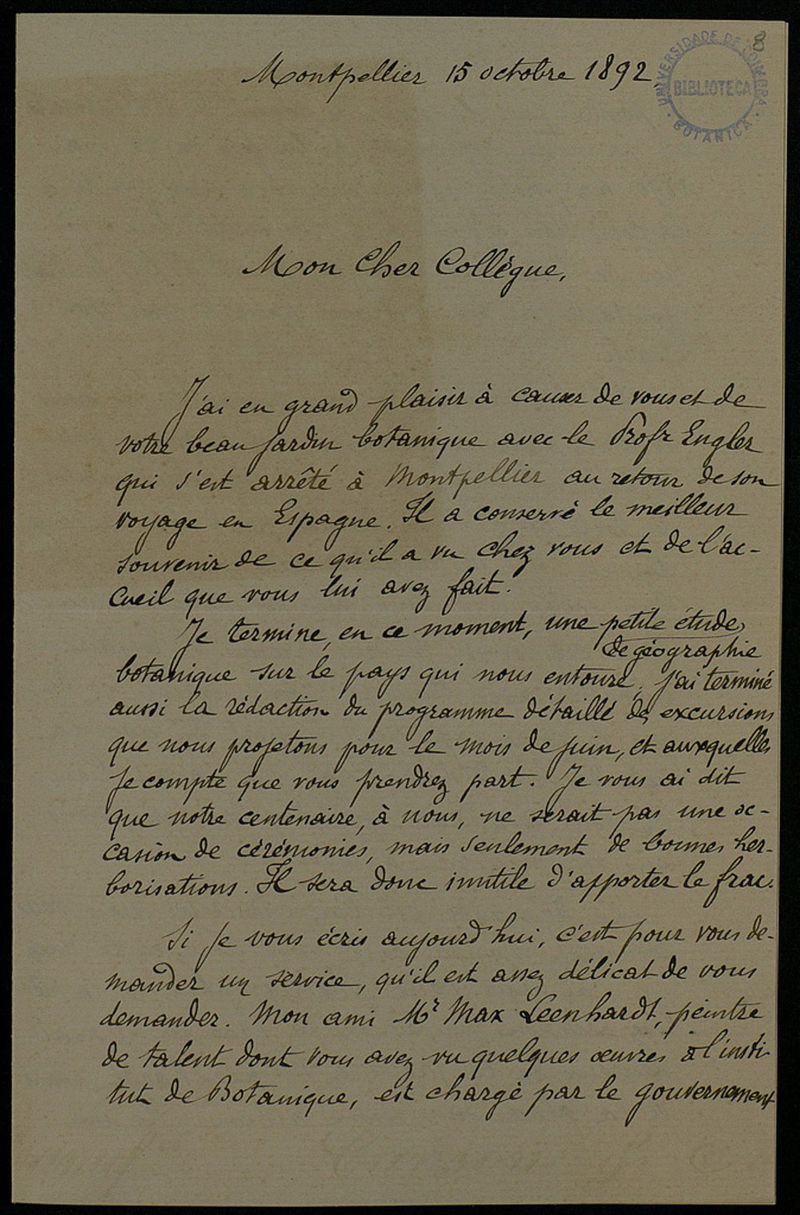 8
UNIVERSIDADE DE COIMBRA
BIBLIOTECA
BOTANICA
Montpellier 15 octobre 1892.
Mon Cher Collègue,
J'ai eu grand plaisir à causer de vous et de
votre beau jardin botanique avec le Profr Engler
qui s'est arrêté à Montpellier au retour de son
voyage en Espagne. Il a conservé le meilleur
souvenir de ce qu'il a vu chez vous et de l'ac-
cueil que vous lui avez fait.
Je termine, en ce moment, une petite étude
de géographie
botanique sur le pays qui nous entoure, j'ai terminé
aussi la rédaction du programme détaillé des excursions
que nous projetons pour le mois de juin, et auxquelles
je compte que vous prendrez part. Je vous ai dit
que notre centenaire, à nous, ne serait pas une oc-
casion de cérémonies, mais seulement de bonnes her-
borisations. Il sera donc inutile d'apporter le frac.
Si je vous écris aujourd'hui, c'est pour vous de-
mander un service, qu'il est assez délicat de vous
demander. Mon ami Mr Max Leenhardt, peintre
de talent dont vous avez vu quelques œuvres à l'insti-
tut de Botanique, est chargé par le gouvernement